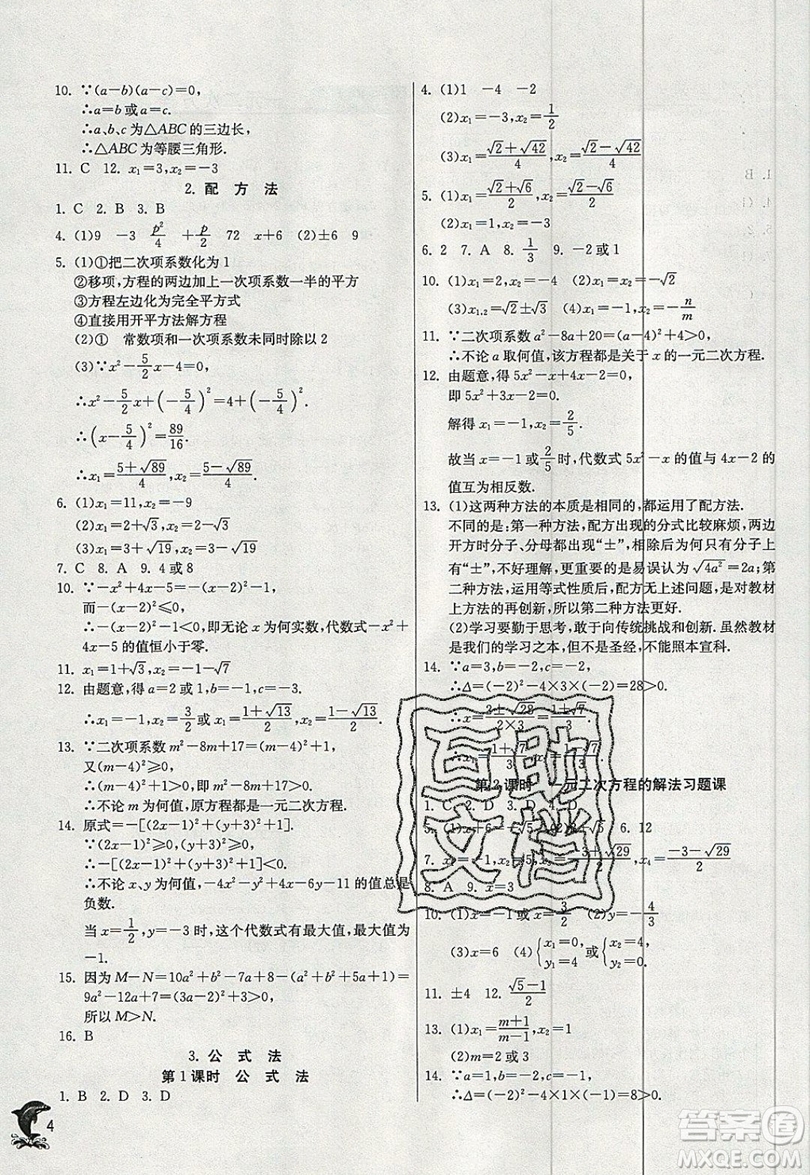 10. ∵(a－b)(a－c)＝0,
∴a＝b 或 a＝c.
∵a、b、c 为△ABC 的三边长,
∴△ABC 为等腰三角形.
11. C 12. x₁＝3,x₂＝－3
2. 配 方 法
1. C 2. B 3. B
4. (1)9 －3 p²/4 ＋p/2 72 x＋6 (2)±6 9
5. (1)①把二次项系数化为 1
②移项,方程的两边加上一次项系数一半的平方
③方程左边化为完全平方式
④直接用开平方法解方程
(2)① 常数项和一次项系数未同时除以 2
(3)∵x²－5/2x－4＝0,
∴x²－5/2x＋(－5/4)²＝4＋(－5/4)²,
∴(x－5/4)²＝89/16.
∴x₁＝(5＋√89)/4,x₂＝(5－√89)/4.
6. (1)x₁＝11,x₂＝－9
(2)x₁＝2＋√3,x₂＝2－√3
(3)x₁＝3＋√19,x₂＝3－√19
7. C 8. A 9. 4 或 8
10. ∵－x²＋4x－5＝－(x－2)²－1,
而－(x－2)²≤0,
∴－(x－2)²－1<0,即无论 x 为何实数,代数式－x²＋
4x－5 的值恒小于零.
11. x₁＝1＋√7,x₂＝1－√7
12. 由题意,得 a＝2,b＝－1,c＝－3.
∴x₁＝－1,x₂＝3/2 或 x₁＝(1＋√13)/2,x₂＝(1－√13)/2.
13. ∵二次项系数 m²－8m＋17＝(m－4)²＋1,
又∵(m－4)²≥0,
∴(m－4)²＋1>0,
∴不论 m 为何值,原方程都是一元二次方程.
14. 原式＝－[(2x－1)²＋(y＋3)²＋1].
∵(2x－1)²≥0,(y＋3)²≥0,
∴－[(2x－1)²＋(y＋3)²＋1]<0.
∴不论 x、y 为何值,－4x²－y²＋4x－6y－11 的值总是
负数.
当 x＝1/2,y＝－3 时,这个代数式有最大值,最大值为
－1.
15. 因为 M－N＝10a²＋b²－7a＋8－(a²＋b²＋5a＋1)＝
9a²－12a＋7＝(3a－2)²＋3>0,
所以 M>N.
16. B
3. 公 式 法
第 1 课时 公 式 法
1. B 2. D 3. D
4
4. (1)1 －4 －2
(2)x₁＝－3,x₂＝1/2
(3)x₁＝(√2＋√42)/4,x₂＝(√2－√42)/4
5. (1)x₁＝(√2＋√6)/2,x₂＝(√2－√6)/2
(2)x₁＝－1,x₂＝3
6. 2 7. A 8. 1/3 9. －2 或 1
10. (1)x₁＝2,x₂＝4 (2)x₁＝0,x₂＝－√2
(3)x₁.₂＝√2±√3 (4)x₁＝0,x₂＝－n/m
11. ∵二次项系数 a²－8a＋20＝(a－4)²＋4>0,
∴不论 a 取何值,该方程都是关于 x 的一元二次方程.
12. 由题意,得 5x²－x＋4x－2＝0,
即 5x²＋3x－2＝0.
解得 x₁＝－1,x₂＝2/5.
故当 x＝－1 或 2/5 时,代数式 5x²－x 的值与 4x－2 的
值互为相反数.
13. (1)这两种方法的本质是相同的,都运用了配方法.
不同的是:第一种方法,配方出现的分式比较麻烦,两边
开方时分子、分母都出现“±”,相除后为何只有分子
有“±”,不好理解,更重要的是易误认为√4a²＝2a.第
二种方法,运用等式性质后,配方无上述问题,是对教材
上方法的再创新,所以第二种方法更好.
(2)学习要勤于思考,敢于向传统挑战和创新.虽然教材
是我们的学习之本,但不是圣经,不能照本宣科.
14. ∵a＝3,b＝－2,c＝－2,
∴Δ＝(－2)²－4×3×(－2)＝28>0.
∴x＝(2±√28)/(2×3)＝(1±√7)/3.
第 2 课时 一元二次方程的解法习题课
1. C 2. D 3. D 4. D
6. 12
8. A 9. x＝3
10. (1)x₁＝－1,x₂＝3/2 (2)y＝－4/3
(3)x＝6 (4){x₁＝0, y₁＝4 或{x₂＝4, y₂＝0.
11. ±4 12. (√5－1)/2
13. (1)x₁＝(m＋1)/(m－1),x₂＝1
(2)m＝2 或 3
14. ∵a＝1,b＝－2,c＝－1,
∴Δ＝(－2)²－4×1×(－1)＝8>0.
互助
文档
答案卷
MXQE.COM